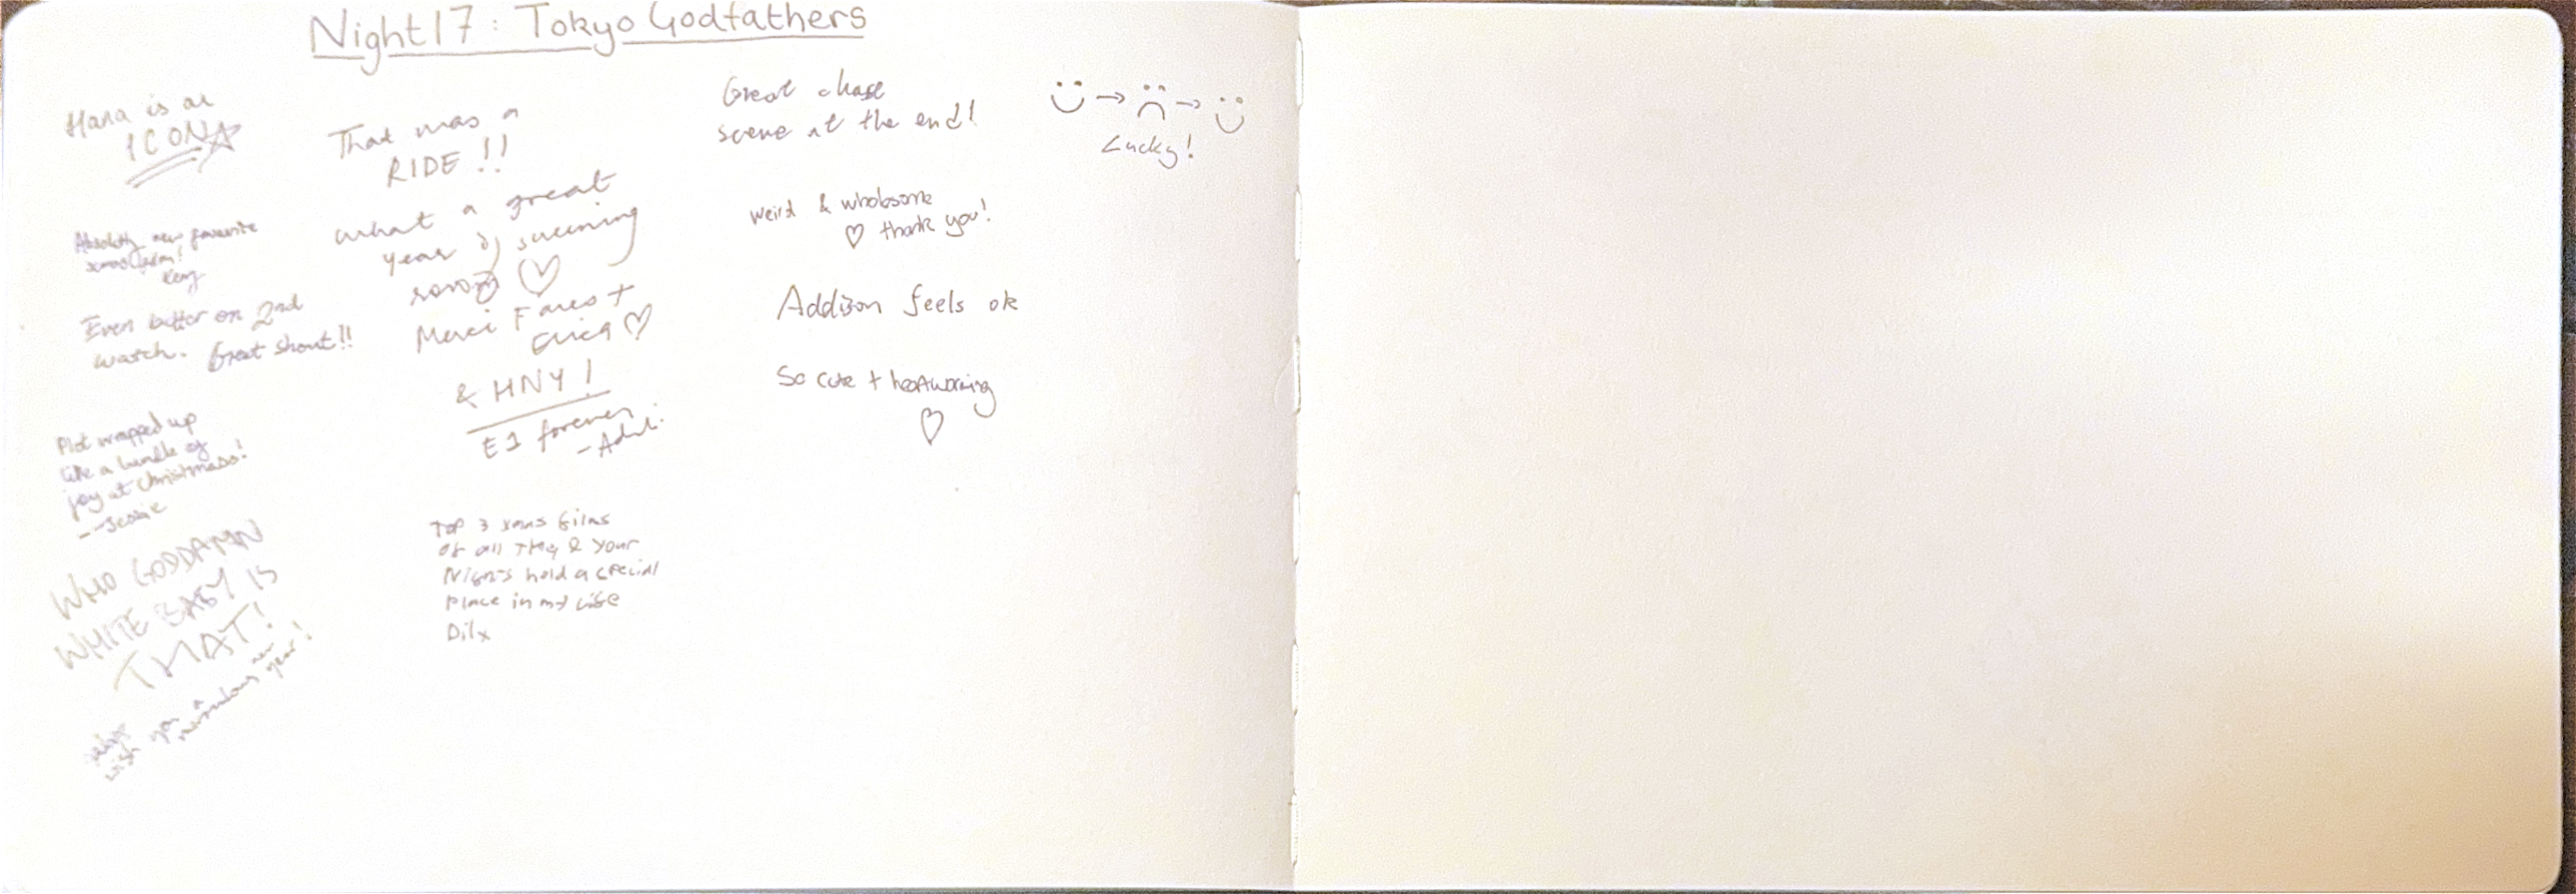 Night 17: Tokyo Godfathers
Hana is an
ICON
Absolutely new favourite
xmas film!
Even better on 2nd
watch. Great shout!!
Plot wrapped up
like a bundle of
joy at Christmass!
- Jessie
WHO GODDAMN
WHITE BABY IS
THAT!
wish you a
new year!
That was a
RIDE!!
what a great
year of screening
Merci Fares +
Erica ♡
& HNY!
E1 forever
Top 3 xmas films
of all time & your
Nights hold a special
place in my life
Dilx
Great chase
scene at the end!
weird & wholesome
♡ thank you!
Addison feels ok
So cute + heartwarming
♡
→ →
Lucky!